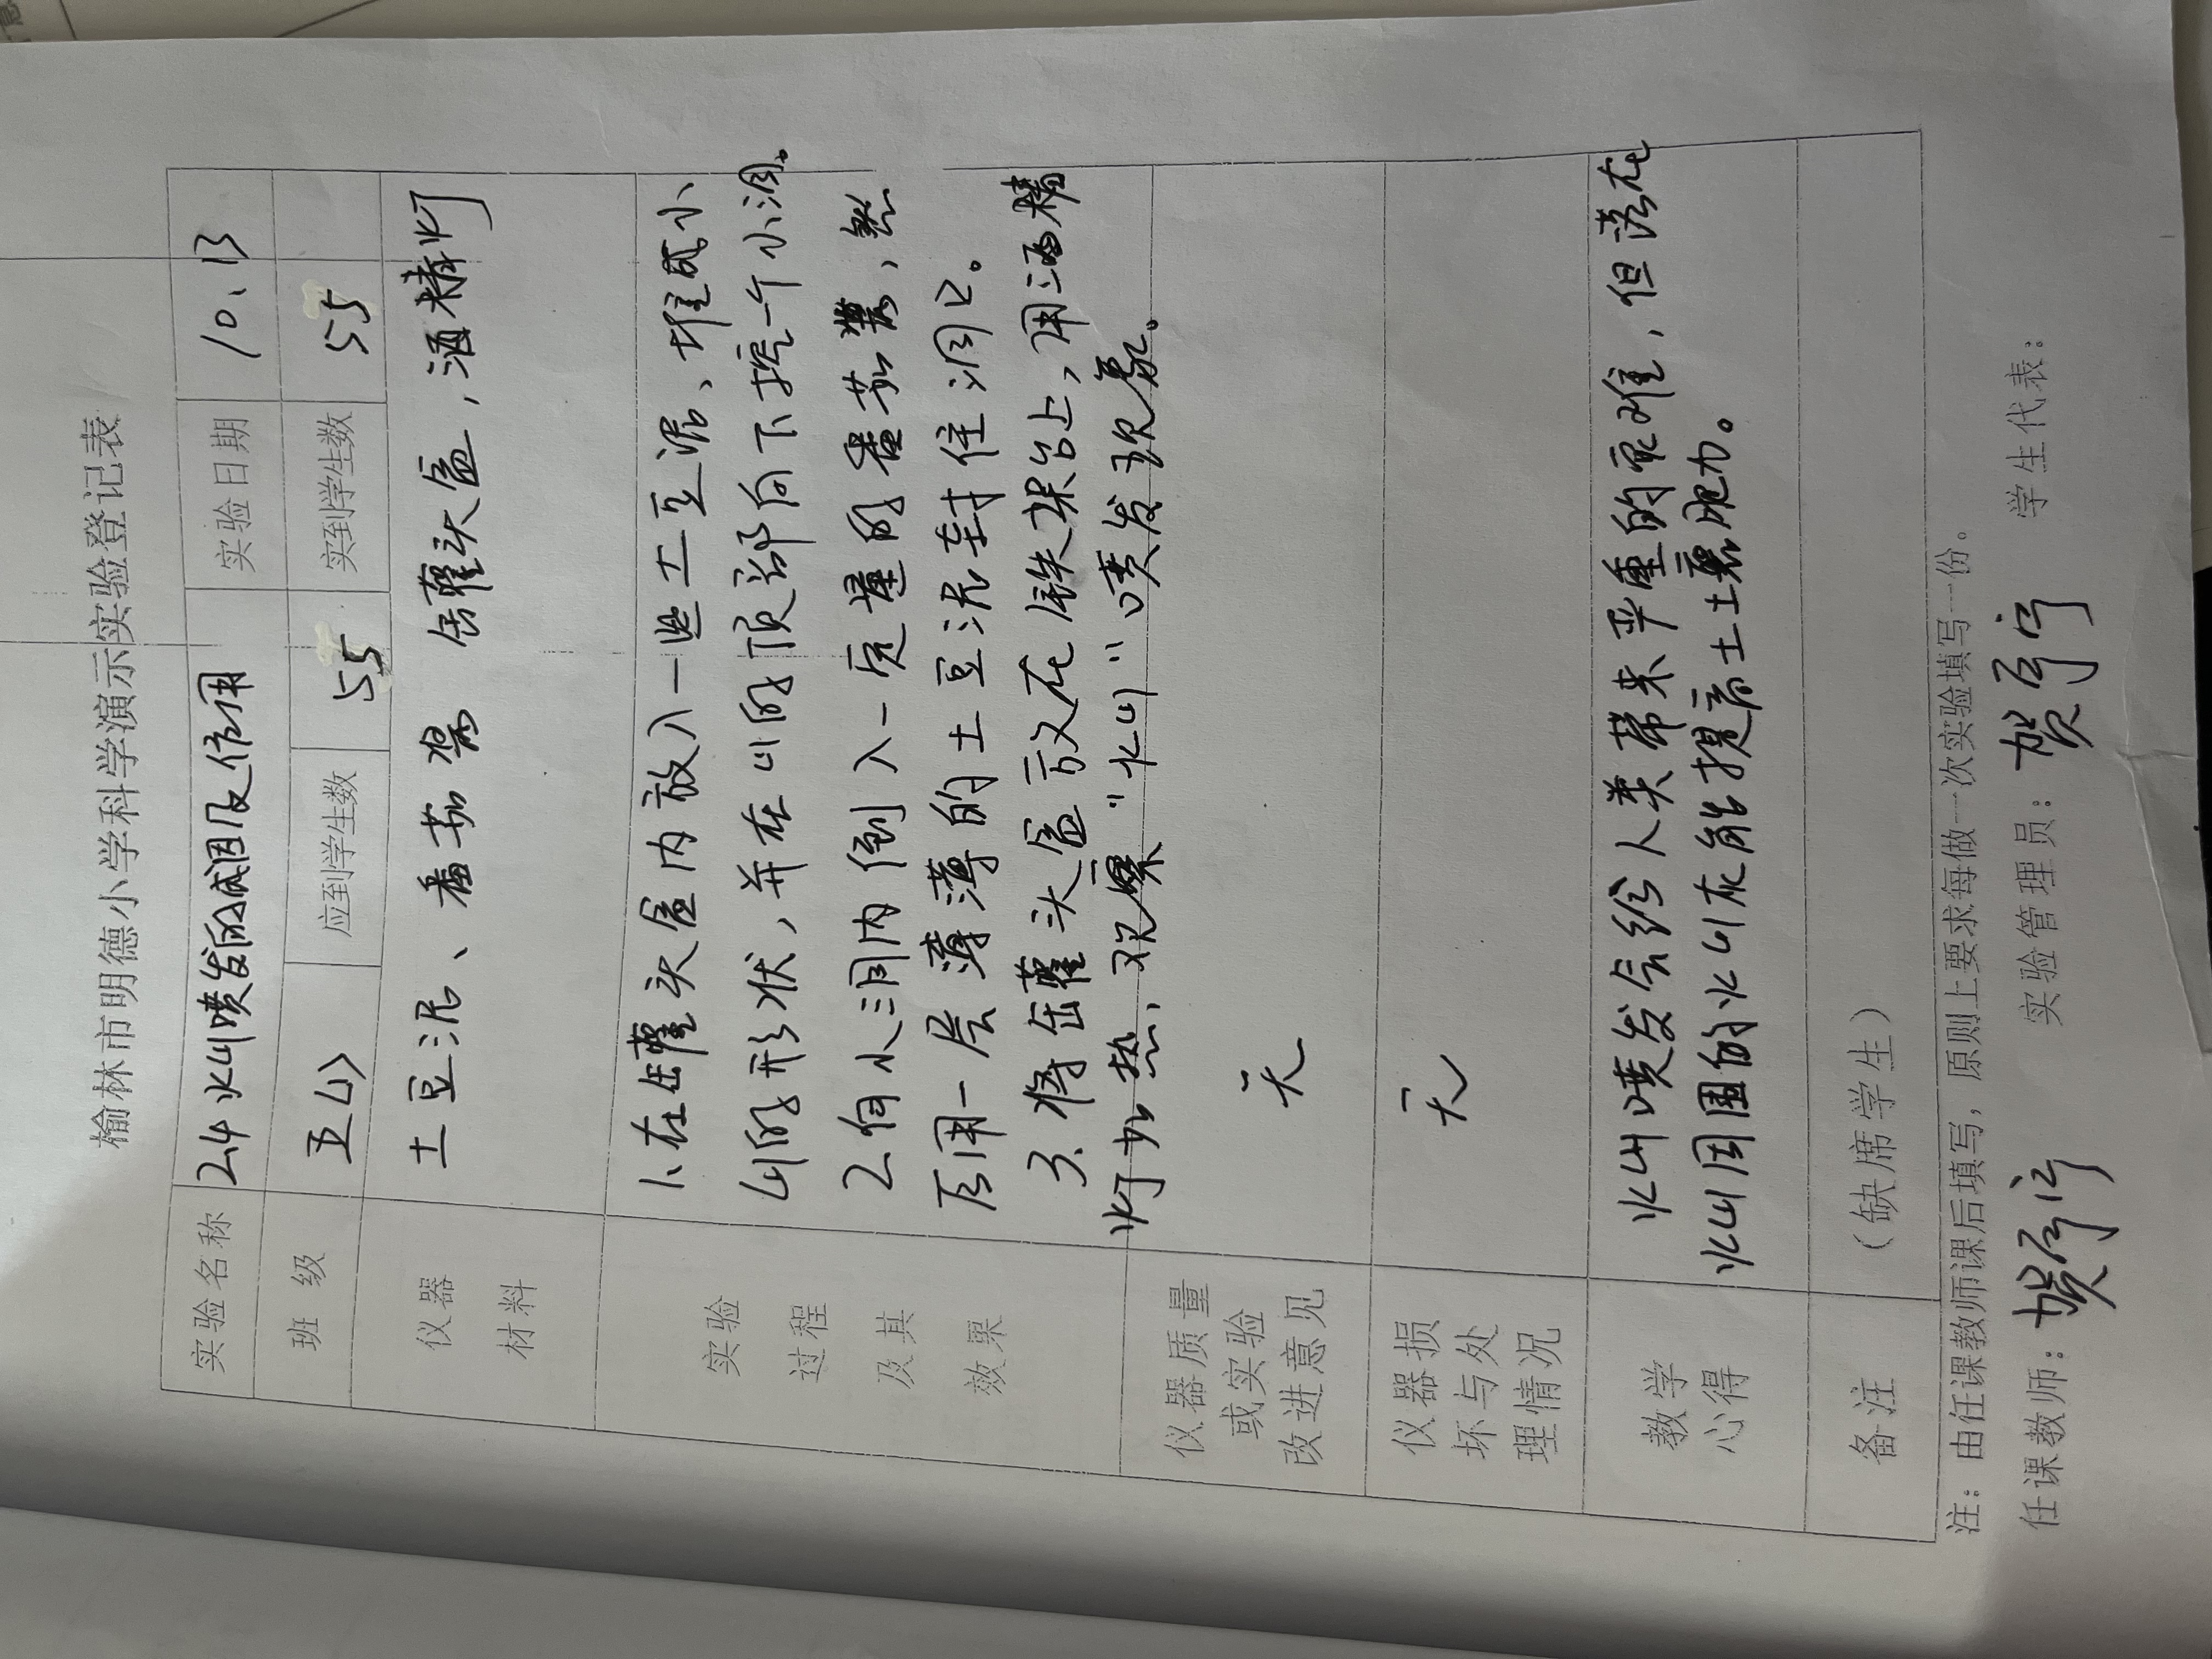 榆林市明德小学科学演示实验登记表
实验名称 24火山喷发的成因及作用 实验日期 10.13
班 级 五(4) 应到学生数 55 实到学生数 55
仪器材料 土豆泥、番茄酱 缶罐头盒,酒精灯
实验过程及其效果
1、在缶罐头盒内放入一些土豆泥、堆成小
山的形状,并在山的顶部向下挖一个小洞。
2.向小洞内倒入一定量的番茄酱,然
后用一层薄薄的土豆泥封住洞口。
3.将缶罐头盒放在铁架台上,用酒精
灯加热,观察“火山”喷发现象。
仪器质量或实验改进意见 无
仪器损坏与处理情况 无
教学心得
火山喷发会给人类带来严重的灾难,但落在
火山周围的火山灰能提高土壤肥力。
备注 (缺席学生)
注:由任课教师课后填写,原则上要求每做一次实验填写一份。
任课教师: 实验管理员: 学生代表: